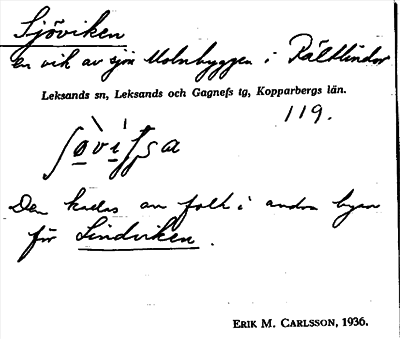 Sjöviken
en vik av sjön Molnbyggen i Rältlindor
Leksands sn, Leksands och Gagnefs tg, Kopparbergs län.
119.
Den kallas av folk i andra byar
för Lindviken.
ERIK M. CARLSSON, 1936.